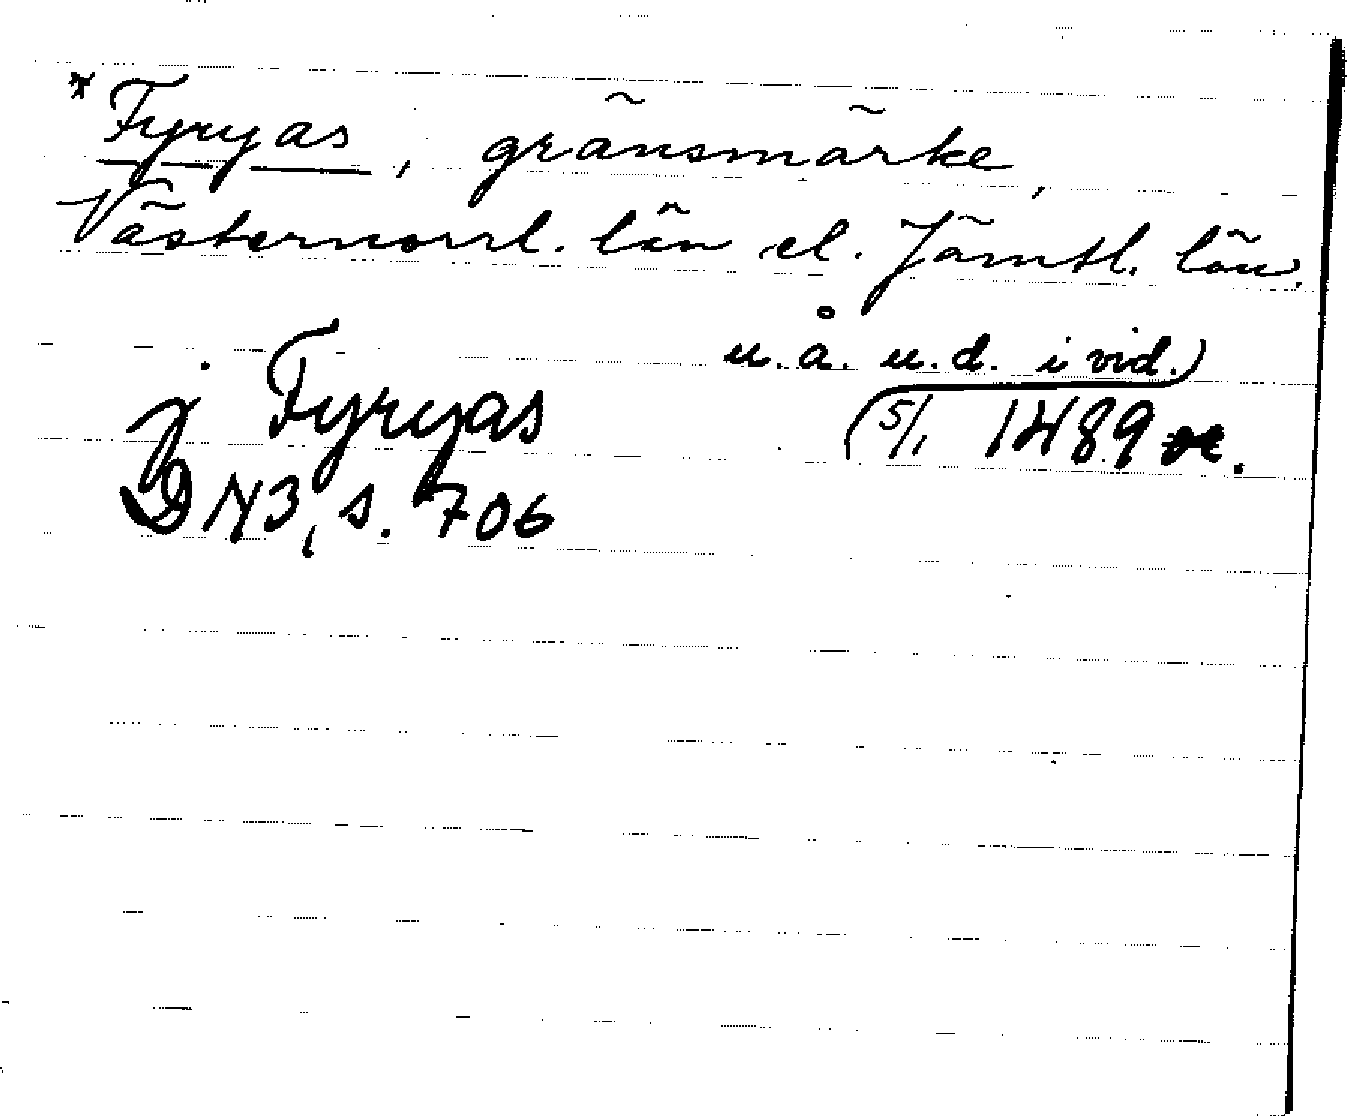 * Fyryas, gränsmärke,
Västernorrl. län el. Jämtl. län.
u.å. u.d. i vid.)
j Fyryas (5/1 1489
DN3, s. 706